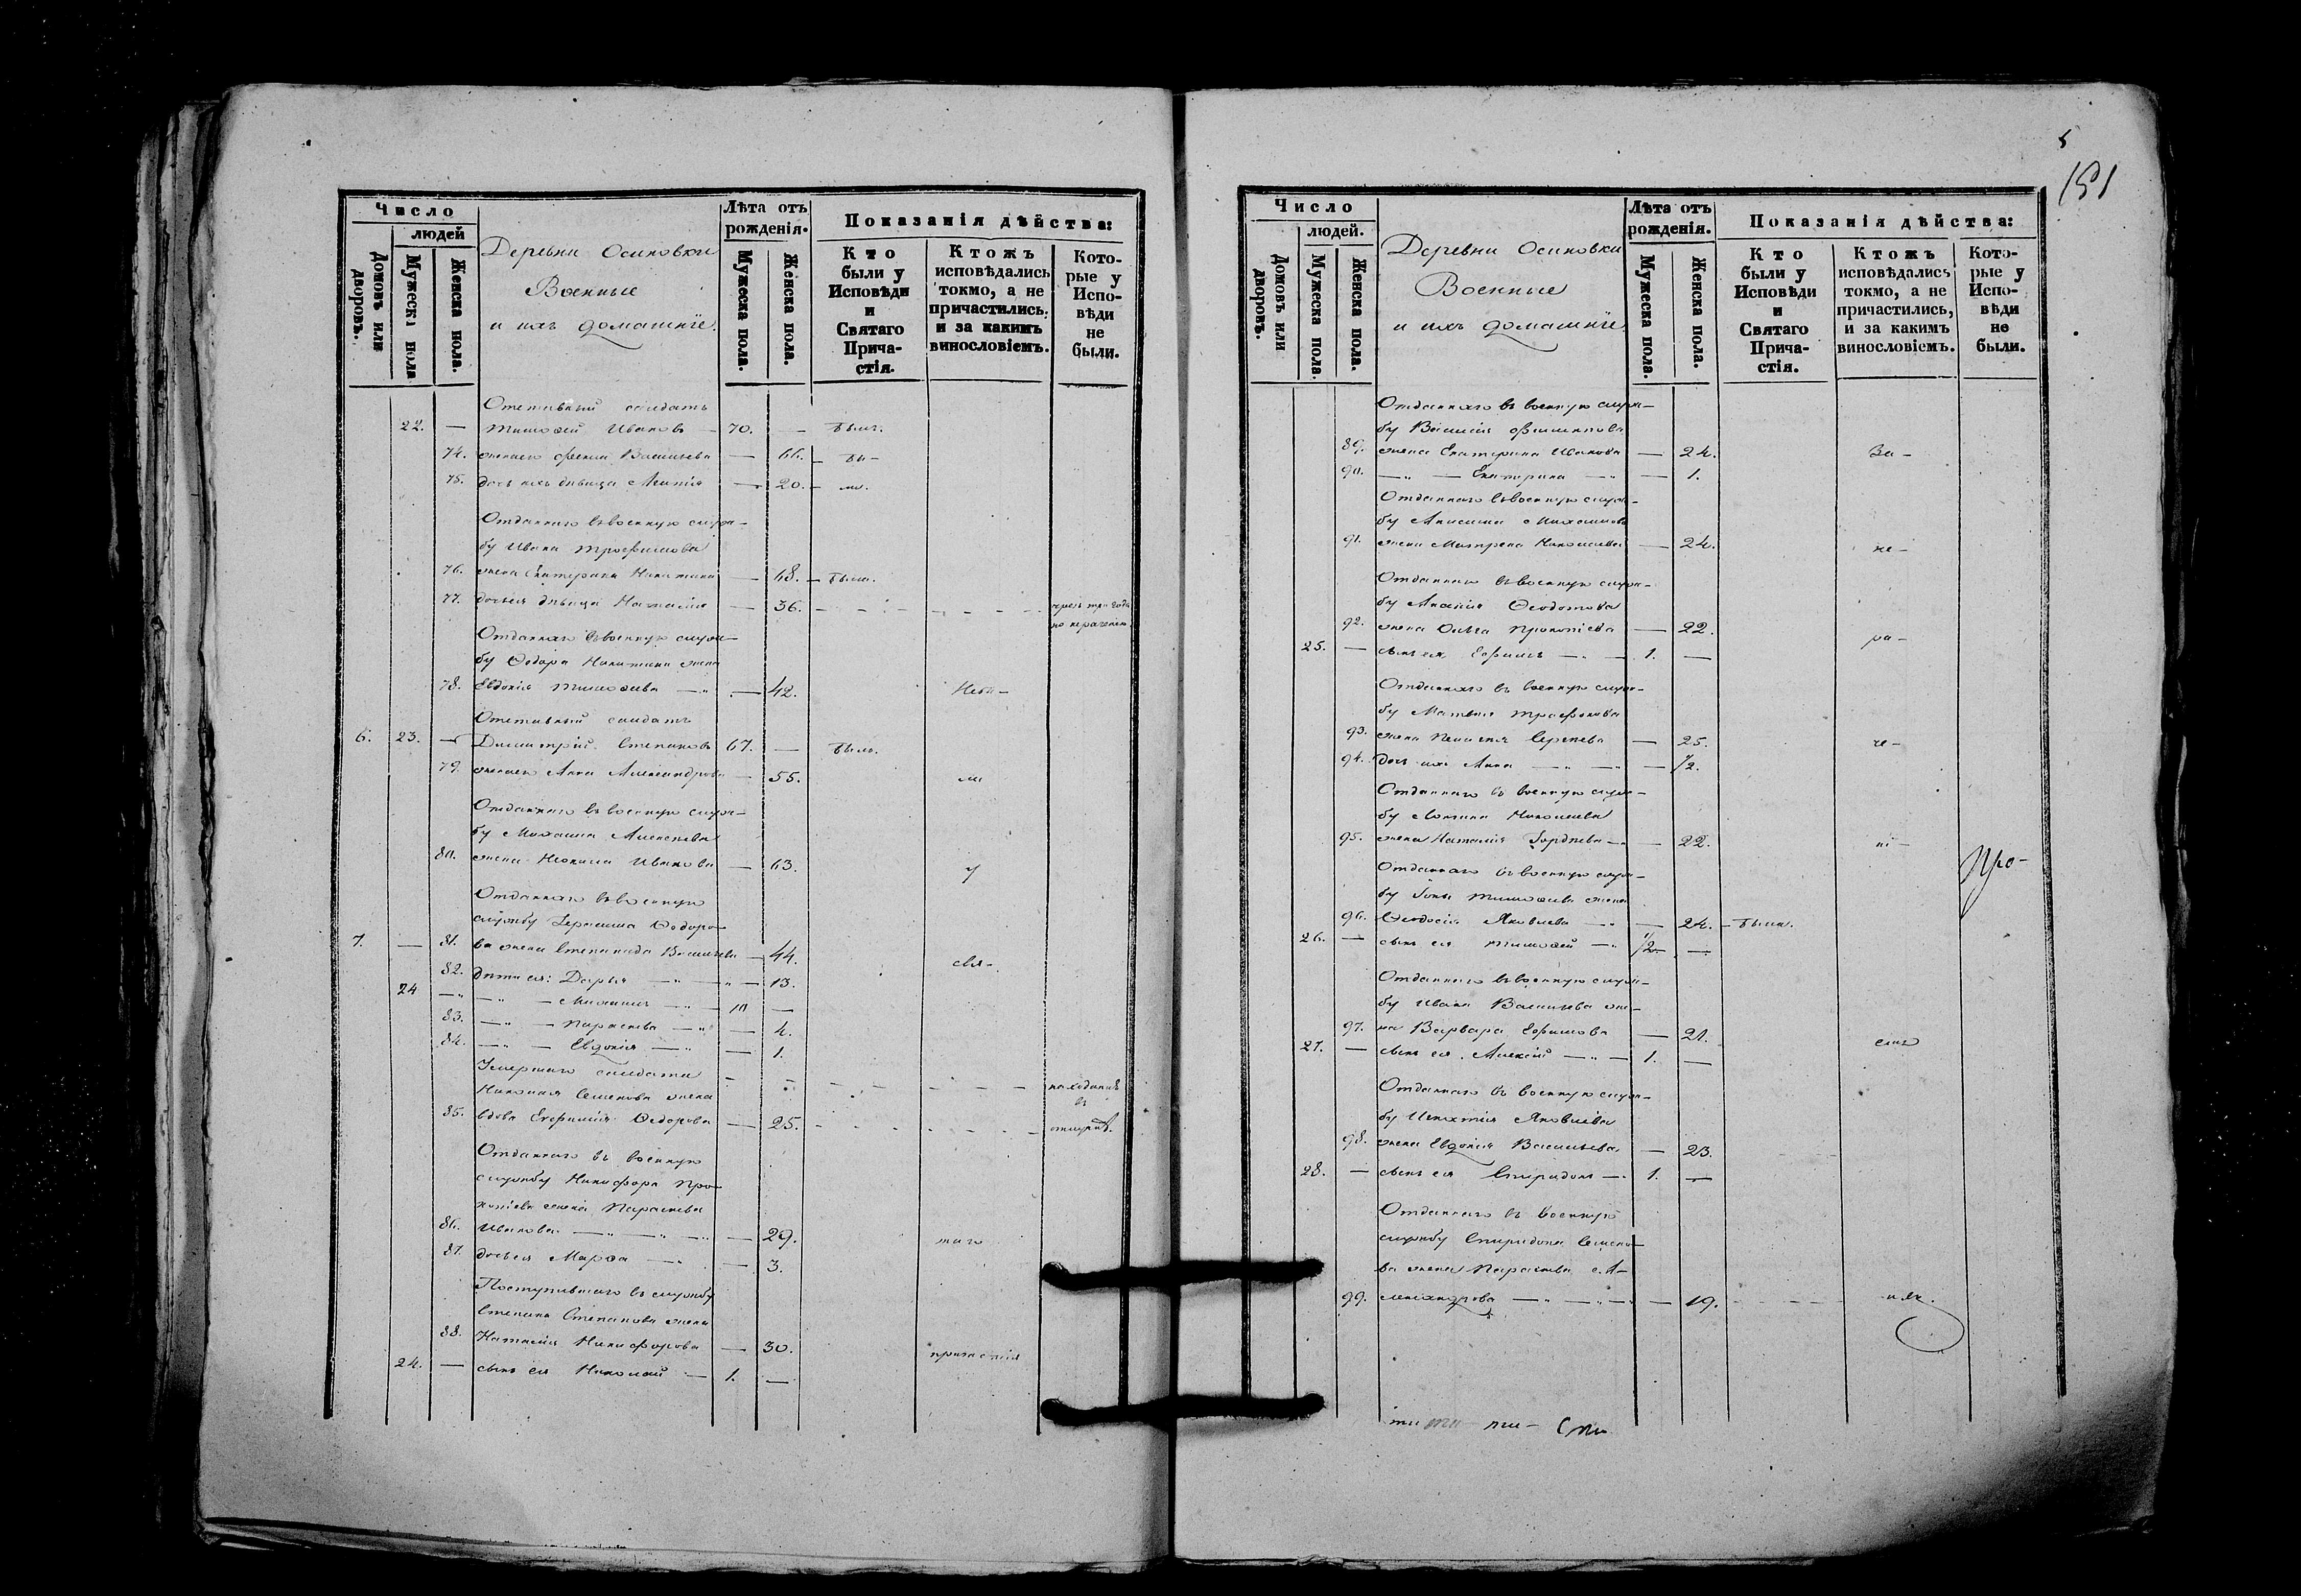 Число
людей
Домовъ или дворовъ.
Мужеска пола
Женска пола.
Деревни Осиновки
Военные
и ихъ домашніе.
Лѣта отъ рожденія.
Мужеска пола.
Женска пола.
Показанія дѣйства:
Кто были у Исповѣди и Святаго Причастія.
Ктожъ исповѣдались токмо, а не причастились, и за какимъ винословіемъ.
Которые у Исповѣди не были.
Отставный солдатъ
22. — Тимофей Ивановъ — 70. — былъ.
74. жена его Ѳекла Васильева — 66. — бы-
75. дочь ихъ дѣвица — 20. — ли.
Отданнаго въ военную служ-
бу Ивана Трофимова
76. жена Екатерина Никитина — 68. — была.
77. дочь ея дѣвица Наталія — 36. чрезъ три года по нераченію
Отданнаго въ военную служ-
бу Ѳедора Никитина жена
78. Евдокія Тимофеева — 42. Небы-
Отставный солдатъ
6. 23. — Димитрій Степановъ 67. — былъ.
79. жена его Анна Александрова — 55. ли
Отданнаго въ военную служ-
бу Михаила Алексѣева
80. жена Неонила Иванова — 63. у
Отданнаго въ военную
службу Герасима Ѳедоро-
7. — 81. ва жена Степанида Васильева — 44. свя-
82. дѣти ея: Дарья — 13.
24 — Михаилъ — 10 —
83. — Параскева — 4.
84. — Евдокія — 1.
Умершаго солдата
Николая Семенова жена находится въ
85. вдова Евфимія Ѳедорова — 25.
Отданнаго въ военную
службу Никифора Про-
копіева жена Параскева
86. Иванова — 29. таго
87. дочь ея Марѳа — 3.
Поступившаго въ службу
Степана Степанова жена
88. Наталія Никифорова — 30. причастія
24. — сынъ ея Николай — 1. —
181
Число
людей.
Домовъ или дворовъ.
Мужеска пола.
Женска пола.
Деревни Осиновки
Военные
и ихъ домашніе
Лѣта отъ рожденія.
Мужеска пола.
Женска пола.
Показанія дѣйства:
Кто были у Исповѣди и Святаго Причастія.
Ктожъ исповѣдались токмо, а не причастились, и за какимъ винословіемъ.
Которые у Исповѣди не были.
Отданнаго въ военную служ-
бу Василія Филиппова
89. жена Екатерина Иванова — 24. За-
90. — Екатерина — 1.
Отданнаго въ военную служ-
бу Анисима Михайлова
91. жена Матрена Николаева — 24. не-
Отданнаго въ военную служ-
бу Ананія Ѳеодотова
92. жена Ольга Прокопіева — 22. ра-
25. — сынъ ея Ефимъ — 1. —
Отданнаго въ военную служ-
бу Матвея Трофимова
93. жена Пелагея Сергѣева — 25. че-
94. дочь их Анна — 1/2.
Отданнаго въ военную служ-
бу Николаева
95. жена Наталія Гордѣева — 22. ні-
Отданнаго въ военную служ-
бу Іоны Тимофеева жена
96. Ѳеодосія Яковлева — 24. — была.
26. — сынъ ея Тимофей — 1/2 —
Отданнаго въ военную служ-
бу Ивана Васильева же-
97. на Варвара Ефимова — 21. емъ
27. — сынъ ея Алексій — 1. —
Отданнаго въ военную служ-
бу Игнатія Яковлева
98. жена Евдокія Васильева — 23.
28. — сынъ ея Спиридонъ — 1. —
Отданнаго въ военную
службу Спиридона Семено-
ва жена Параскева А-
99. лександрова — 19.
Про-